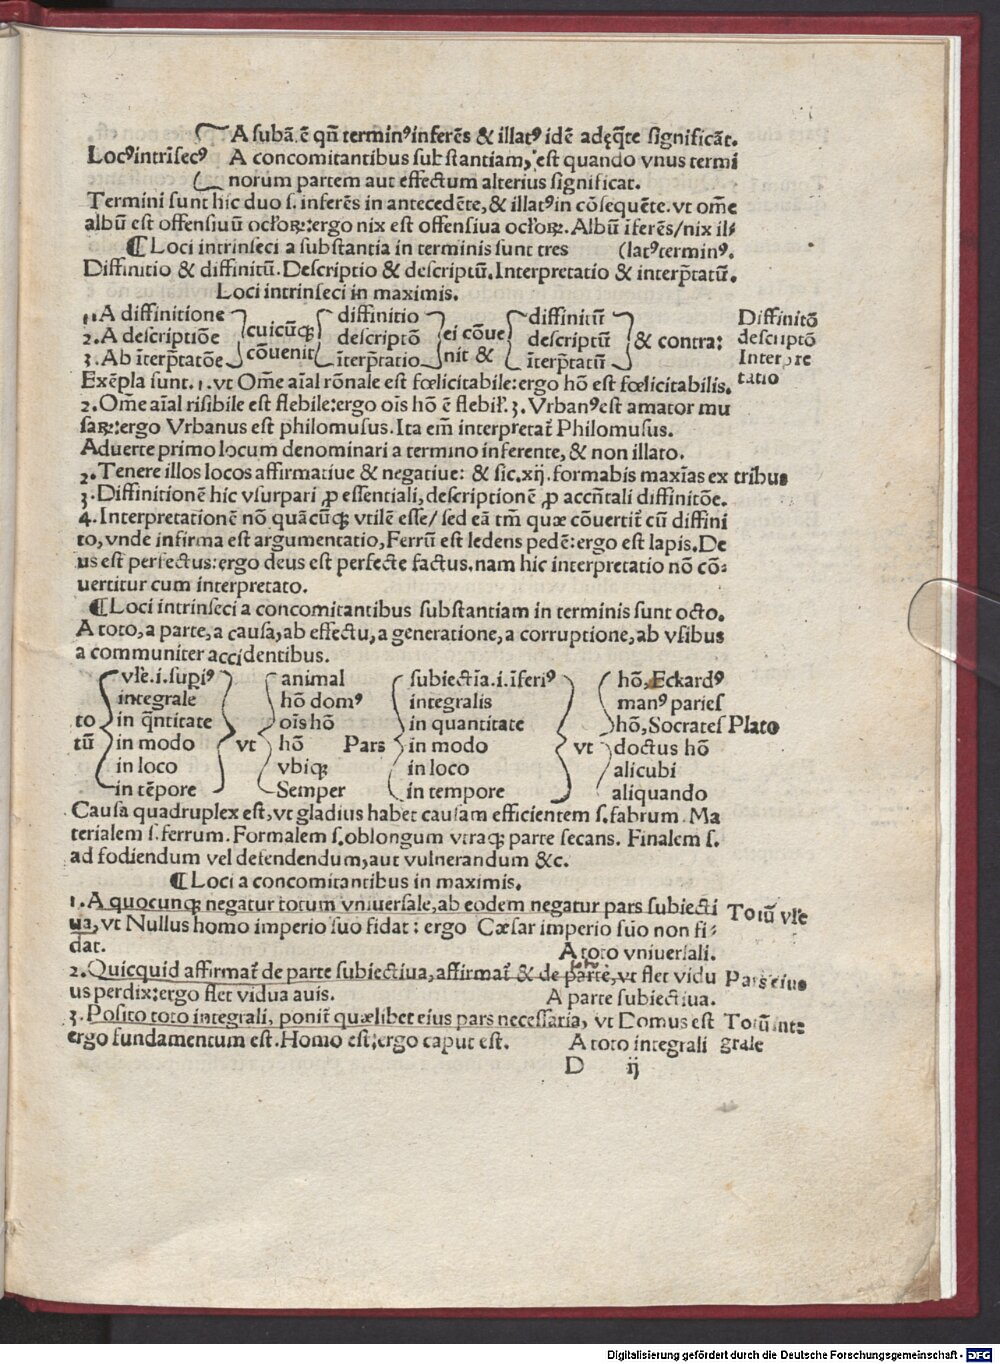 A subã. ẽ qñ terminꝰ inferẽs & illatꝰ idẽ adęq̃te significãt.
Locꝰ intrĩsecꝰ A concomitantibus substantiam, est quando vnus termi
norum partem aut effectum alterius significat.
Termini sunt hic duo s. inferẽs in antecedẽte, & illatꝰ in cõsequẽte. vt om̃e
albũ est offensiuũ ocłoꝝ: ergo nix est offensiua ocłoꝝ. Albũ ĩferẽs/nix il⸗
¶ Loci intrinseci a substantia in terminis sunt tres (latꝰ terminꝰ.
Diffinitio & diffinitũ. Descriptio & descriptũ. Interpretatio & interp̃tatũ.
Loci intrinseci in maximis.
1. A diffinitione cuicũqꝫ diffinitio ei cõue diffinitũ & contra: Diffinitõ
2. A descriptiõe cõuenit descriptõ nit & descriptũ descriptõ
3. Ab ĩterp̃tatõe ĩterp̃tatio ĩterp̃tatũ Interpre
tatio
Exẽpla sunt. 1. vt Om̃e aĩal rõnale est fœlicitabile: ergo hõ est fœlicitabilis.
2. Om̃e aĩal risibile est flebile: ergo oĩs hõ ẽ flebił. 3. Vrbanꝰ est amator mu
saꝝ: ergo Vrbanus est philomusus. Ita em̃ interpretat̃ Philomusus.
Aduerte primo locum denominari a termino inferente, & non illato.
2. Tenere illos locos affirmatiue & negatiue: & sic. xij. formabis maxĩas ex tribus
3. Diffinitionẽ hic vsurpari ꝓ essentiali, descriptionẽ ꝓ accñtali diffinitõe.
4. Interpretationẽ nõ quãcũqꝫ vtilẽ esse/ sed eã tm̃ quæ cõuertit̃ cũ diffini
to, vnde infirma est argumentatio, Ferrũ est ledens pedẽ: ergo est lapis. De
us est perfectus: ergo deus est perfecte factus. nam hic interpretatio nõ cõ⸗
uertitur cum interpretato.
¶ Loci intrinseci a concomitantibus substantiam in terminis sunt octo.
A toto, a parte, a causa, ab effectu, a generatione, a corruptione, ab vsibus
a communiter accidentibus.
vłe. i. supiꝰ animal subiectĩa. i. ĩferiꝰ hõ, Eckardꝰ
integrale hõ domꝰ integralis manꝰ paries
to in q̃ntitate oĩs hõ in quantitate hõ, Socrates Plato
tũ in modo vt hõ Pars in modo vt doctus hõ
in loco vbiqꝫ in loco alicubi
in tẽpore Semper in tempore aliquando
Causa quadruplex est, vt gladius habet causam efficientem s. fabrum. Ma
terialem s. ferrum. Formalem s. oblongum vtraqꝫ parte secans. Finalem s.
ad fodiendum vel defendendum, aut vulnerandum &c.
¶ Loci a concomitantibus in maximis.
1. A quocunqꝫ negatur totum vniuersale, ab eodem negatur pars subiecti Totũ vłe
ua, vt Nullus homo imperio suo fidat: ergo Cæsar imperio suo non fi⸗
dat. A toto vniuersali.
2. Quicquid affirmat̃ de parte subiectiua, affirmat̃ & de parte, vt flet vidu Pars eius
us perdix: ergo flet vidua auis. A parte subiectiua.
3. Posito toto integrali, ponit̃ quælibet eius pars necessaria, vt Domus est Totũ inte
ergo fundamentum est. Homo est: ergo caput est. A toto integrali grale
D ij
Digitalisierung gefördert durch die Deutsche Forschungsgemeinschaft - DFG